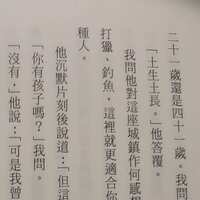 二十一歲還是四十一歲。我問
「土生土長。」他答覆。
我問他對這座城鎮作何感想
打獵、釣魚，這裡就更適合你
種人。
他沉默片刻後說道：「但這
「你有孩子嗎？」我問。
「沒有，」他說：「可是我曾